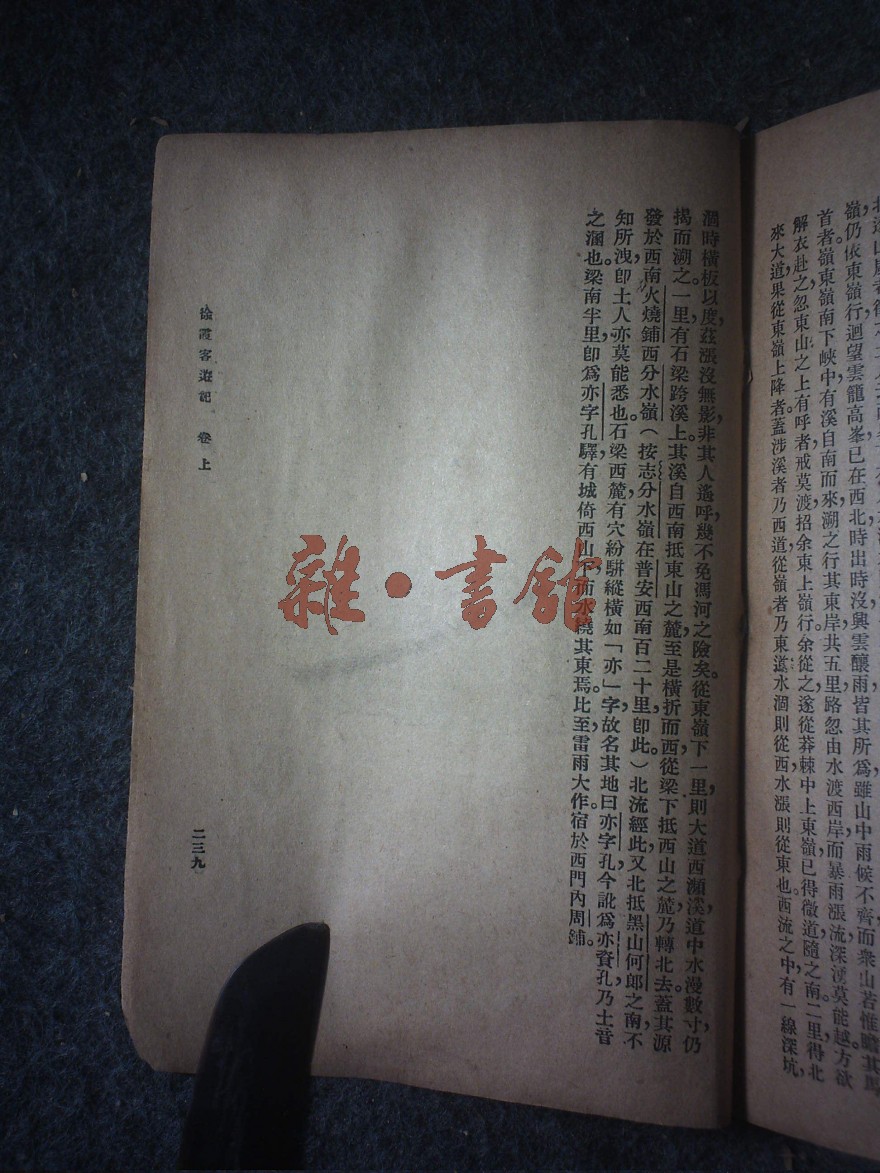 嶺，仍依東嶺行，迴望雲龍高峯，已在西北，時出時沒，興雲釀雨，皆其所爲。雖山中雨候不齊，而衆山若惟瞻其馬
首者。嶺東嶺南下峽中，有溪自南而來，溯之行其東岸，共五里，路忽由水渡西岸，而暴雨漲流，深湧莫能越，方欲
解衣赴之，忽東山之上有呼者，戒莫渡，招余東上嶺行。余從之，遂從莽棘中上東嶺，已得微道，隨之南二里，得北
來大道，果從東嶺上降者。蓋涉溪者乃西道，從嶺者乃東道，水涸則從西，水漲則從東也。西流之中，有一線深坑，
涸時橫板以度，茲漲沒無影，非其人遙呼，幾不免馮河之險矣。從東嶺下一里，則大道西瀕溪，道中水漫數寸，仍
揭而溯之。一里，有石梁跨溪上。其溪自西南抵東山之麓，至是橫折而西，從梁下抵西山之麓，乃轉北去。蓋其源
發於西南火燒鋪西分水嶺（按志分水嶺在普安西南百二十里，卽此。）北流經此，又北抵黑山何郎之南，不
知所洩，卽土人亦莫能悉也。石梁西麓，有穴紛騈縱橫如「亦」字，故名其地曰亦字孔，今訛爲亦資孔，乃土音
之溷也。梁南半里，卽爲亦字孔驛，有城倚西山下，而水繞其東焉。比至，雷雨大作。宿於西門內周鋪。
徐霞客遊記 卷上
二三九
雜·書館